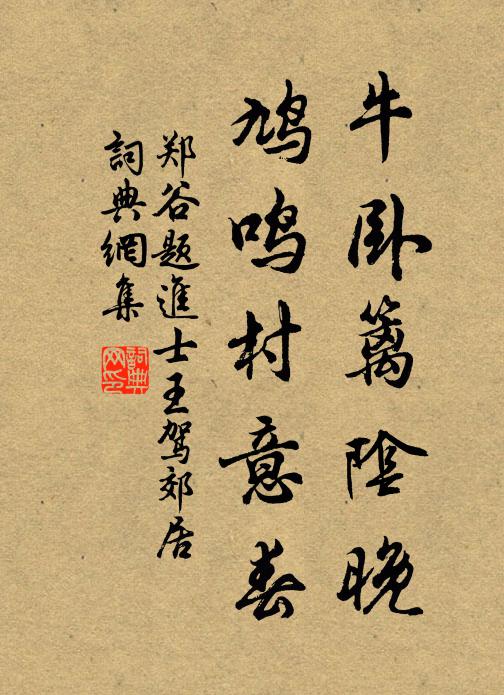 牛卧篱陰晚
鸠鸣村意春
郑谷题進士王駕郊居
詞典網集
詞典网印